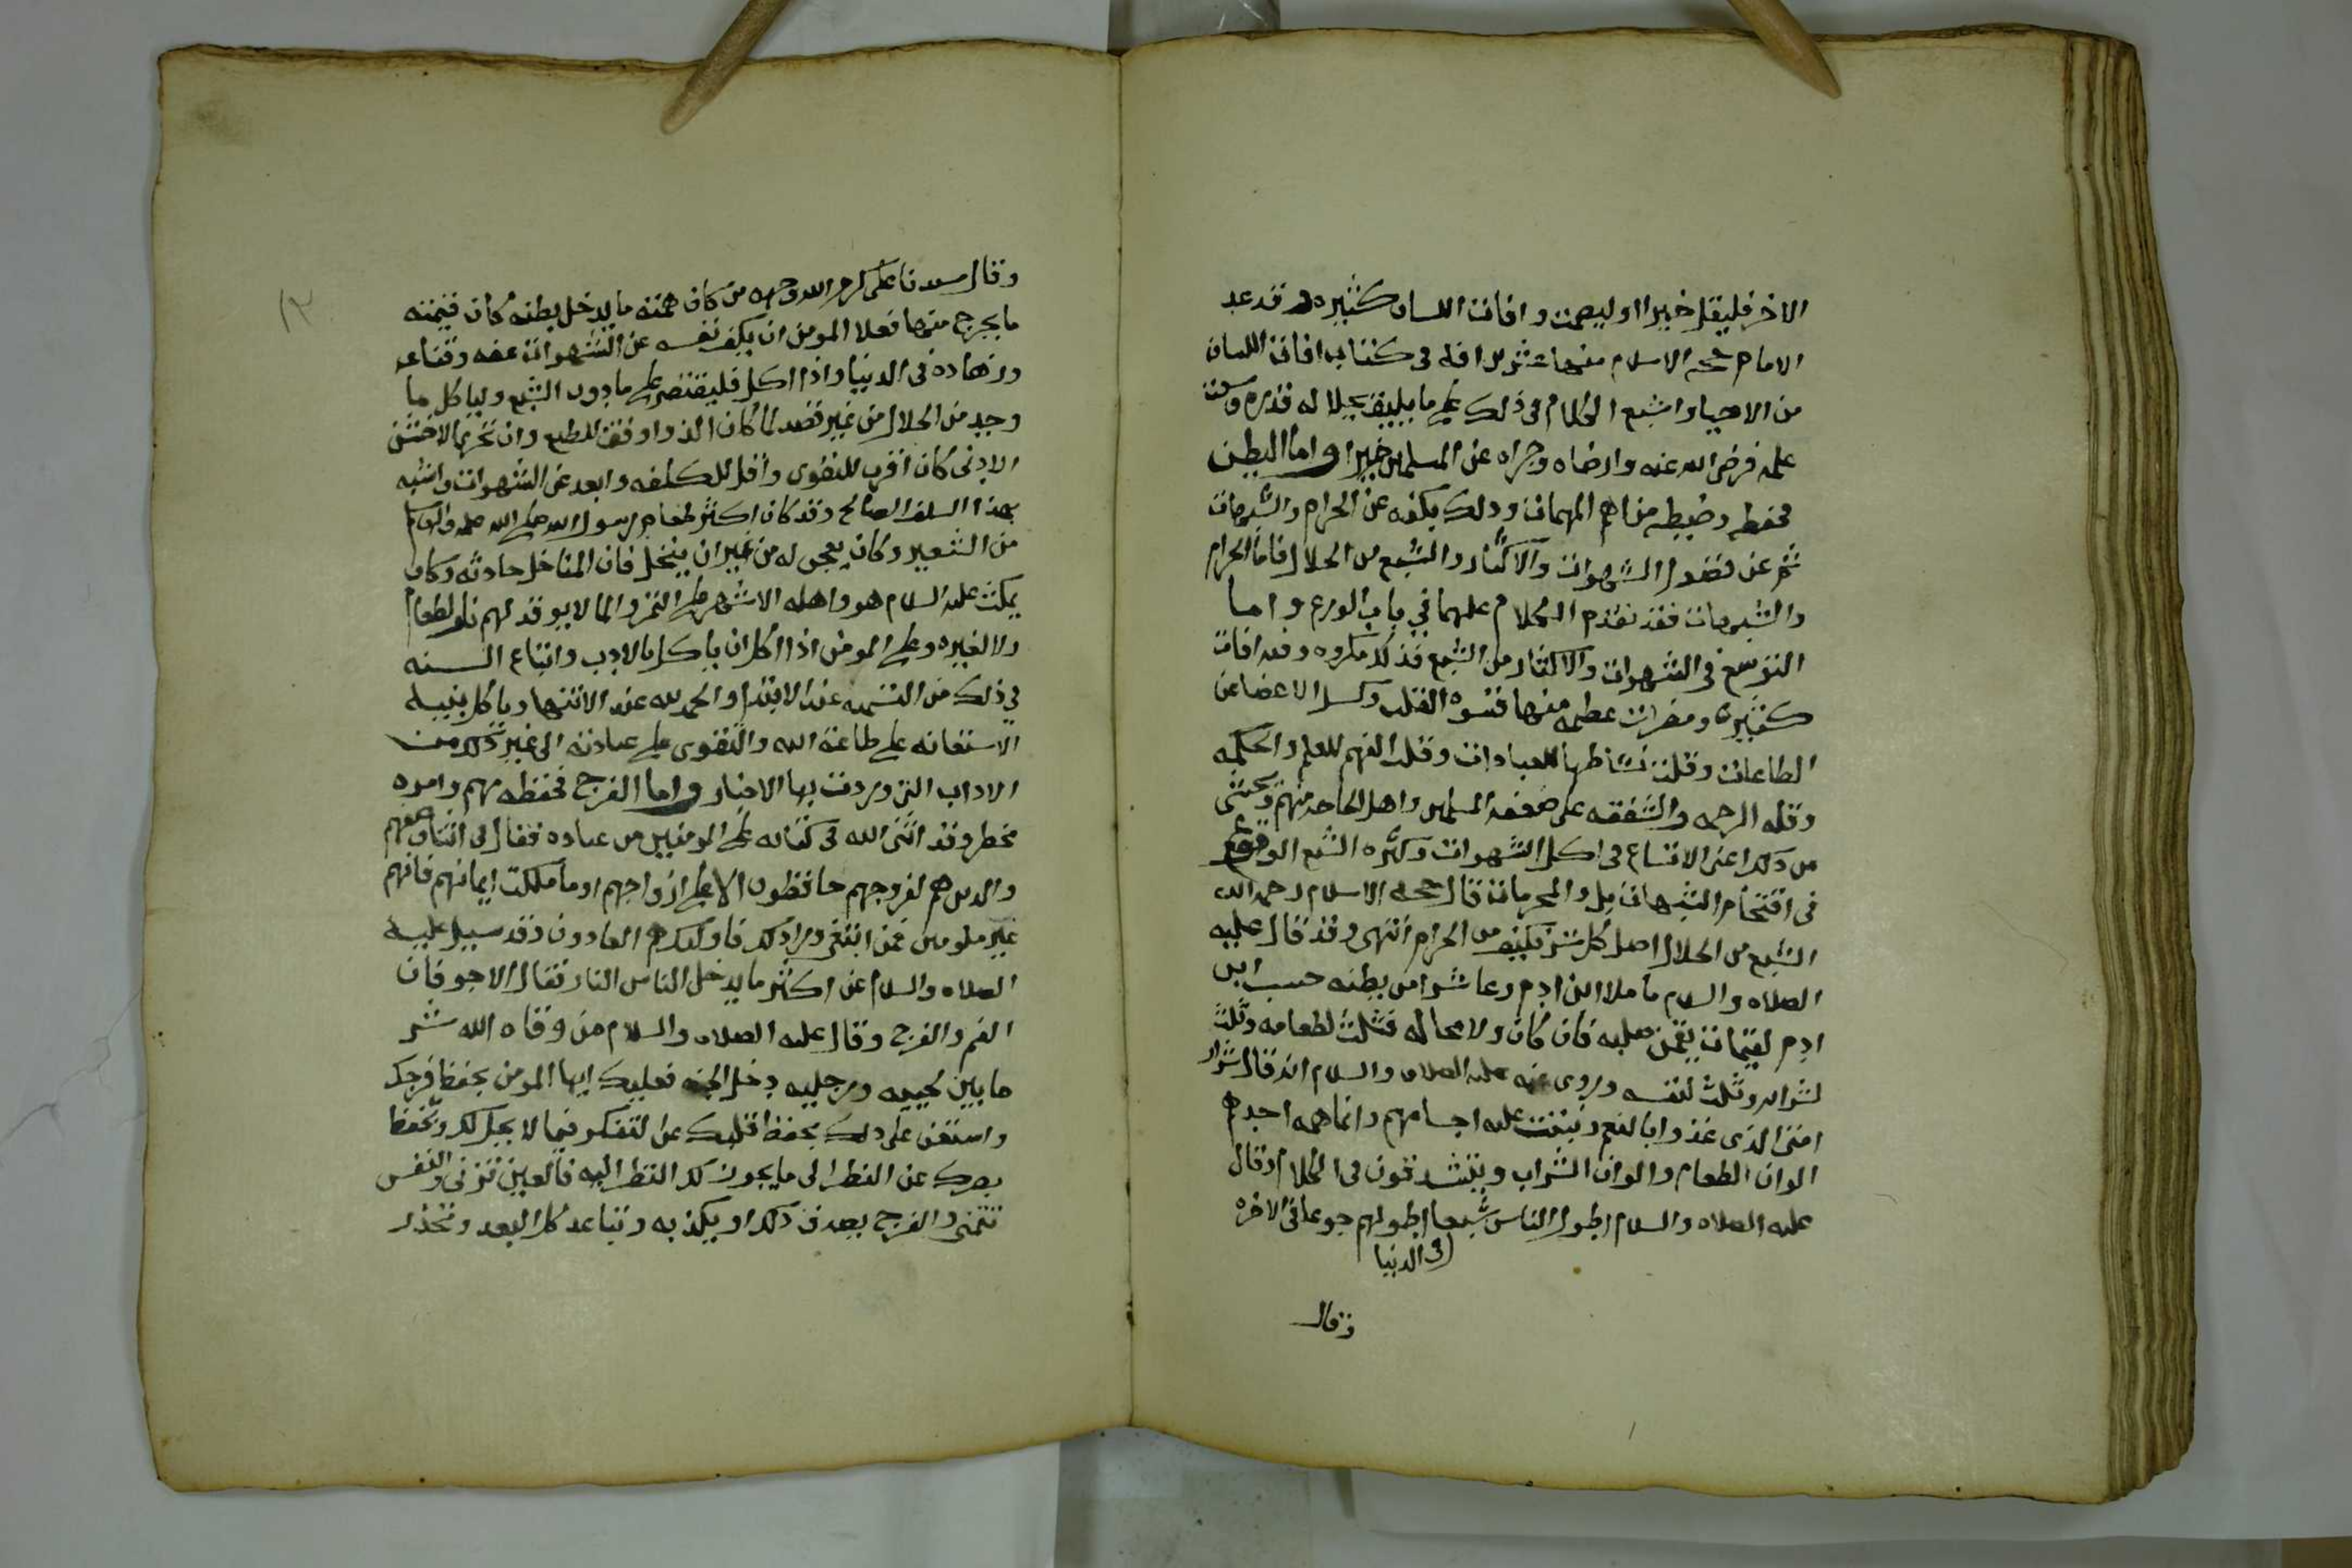 الاخر فليقل خيرا او ليصمت وافات اللسان كثيره وقد عد
الامام حجه الاسلام منها عشرين افه في كتاب افات اللسان
من الاحيا واشبع الكلام في ذلك على ما يليق بجلاله قدره وسعت
علمه فرضي الله عنه وارضاه وجزاه عن المسلمين خيرا واما البطن
فحفظه وضبطه من اهم المهمات وذلك بكفه عن الحرام والشبهات
ثم عن فضول الشهوات والاكثار والشبع من الحلال فاما الحرام
والشبهات فقد تقدم الكلام عليهما في باب الورع واما
التوسع في الشهوات والاكثار من الشبع فذلك مكروه وفيه افات
كثيره ومضرات عظيمه منها قسوه القلب وكسل الاعضا عن
الطاعات وقلت نشاطها للعبادات وقلت الفهم للعلم والحكمه
وقله الرحمه والشفقه على ضعفه المسلمين واهل الحاجه منهم ويخشى
من ذلك اعني الاتساع في اكل الشهوات وكثره الشبع الوقوع
في اقتحام الشبهات بل والمحرمات قال حجه الاسلام رحمه الله
الشبع من الحلال اصل كل شر فكيف من الحرام انتهى وقد قال عليه
الصلاه والسلام ما ملا ابن ادم وعا شرا من بطنه حسب ابن
ادم لقيمات يقمن صلبه فان كان ولا محاله فثلث لطعامه وثلث
لشرابه وثلث لنفسه وروي عنه عليه الصلاه والسلام انه قال شرار
امتي الذي غذوا بالنعم ونبتت عليه اجسامهم وانما همه احدهم
الوان الطعام والوان الشراب ويتشدقون في الكلام وقال
عليه الصلاه والسلام اطول الناس شبعا اطولهم جوعا في الاخره
في الدنيا
وقال
١٣
وقال سيدنا علي كرم الله وجهه من كان همته ما يدخل بطنه كان قيمته
ما يخرج منها فعلا المومن ان يكف نفسه عن الشهوات عفه وقناعه
وزهاده في الدنيا واذا اكل فليقتصر على ما دون الشبع ولياكل ما
وجد من الحلال من غير قصد لما كان الذ واوفق للطبع وان تحرى الاخشن
الادنى كان اقرب للتقوى واقل للكلفه وابعد عن الشهوات واشبه
بهدا السلف الصالح وقد كان اكثر طعام رسول الله صلى الله عليه واله وسلم
من الشعير وكان يعجن له من غير ان ينخل فان المناخل حادثه وكان
يمكث عليه السلام هو واهله الاشهر على التمر والما لا يوقد لهم نار لطعام
ولا لغيره وعلى المومن اذا اكل ان ياكل بالادب واتباع السنه
في ذلك من التسميه عند الابتدا والحمد لله عند الانتها وياكل بنيه
الاستعانه على طاعته الله والتقوى على عبادته الى غير ذلك من
الاداب التي وردت بها الاخبار واما الفرج فحفظه مهم وامره
مخطر وقد اثنى الله في كتابه على المومنين من عباده فقال في اثنا وصفهم
والذين هم لفروجهم حافظون الا على ازواجهم او ما ملكت ايمانهم فانهم
غير ملومين فمن ابتغى ورا ذلك فاولئك هم العادون وقد سييل عليه
الصلاه والسلام عن اكثر ما يدخل الناس النار فقال الاجوفان
الفم والفرج وقال عليه الصلاه والسلام من وقاه الله شر
ما بين لحييه ورجليه دخل الجنه فعليك ايها المومن بحفظ فرجك
واستعن على ذلك بحفظ قلبك عن التفكر فيما لا يحل لك وبحفظ
بصرك عن النظر الى ما يجوز لك النظر اليه فالعين تزني والنفس
تتمنى والفرج يصدق ذلك او يكذبه وتباعد كل البعد وتحذر